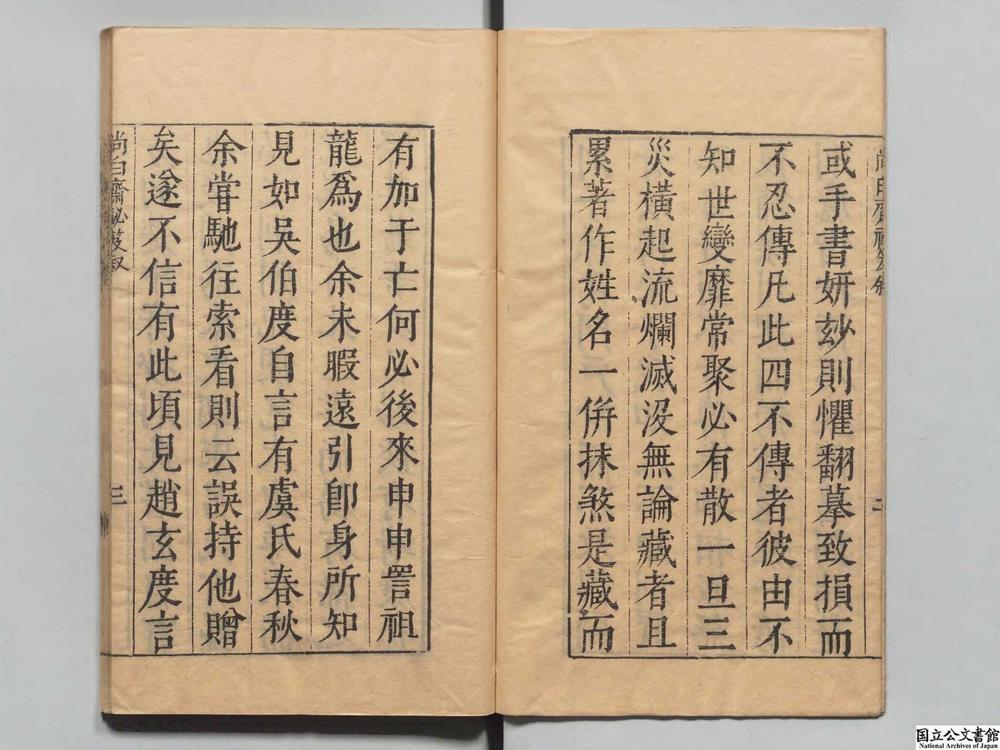 或手書妍玅則懼翻摹致損而
不忍傳凡此四不傳者彼由不
知世變靡常聚必有散一旦三
災橫起流爛滅沒無論藏者且
累著作姓名一併抹煞是藏而
二
有加于亡何必後來申申詈祖
龍爲也余未暇遠引卽身所知
見如吳伯度自言有虞氏春秋
余甞馳往索看則云誤持他贈
矣遂不信有此頃見趙玄度言
尚白齋秘笈叙
三
国立公文書館
National Archives of Japan